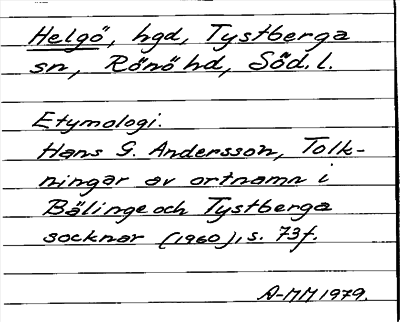 Helgö, hgd, Tystberga
sn, Rönö hd, Söd. l.
Etymologi.
Hans G. Andersson, Tolk-
ningar av ortnamn i
Bälinge och Tystberga
socknar (1960), s. 73f.
A-MM 1979.